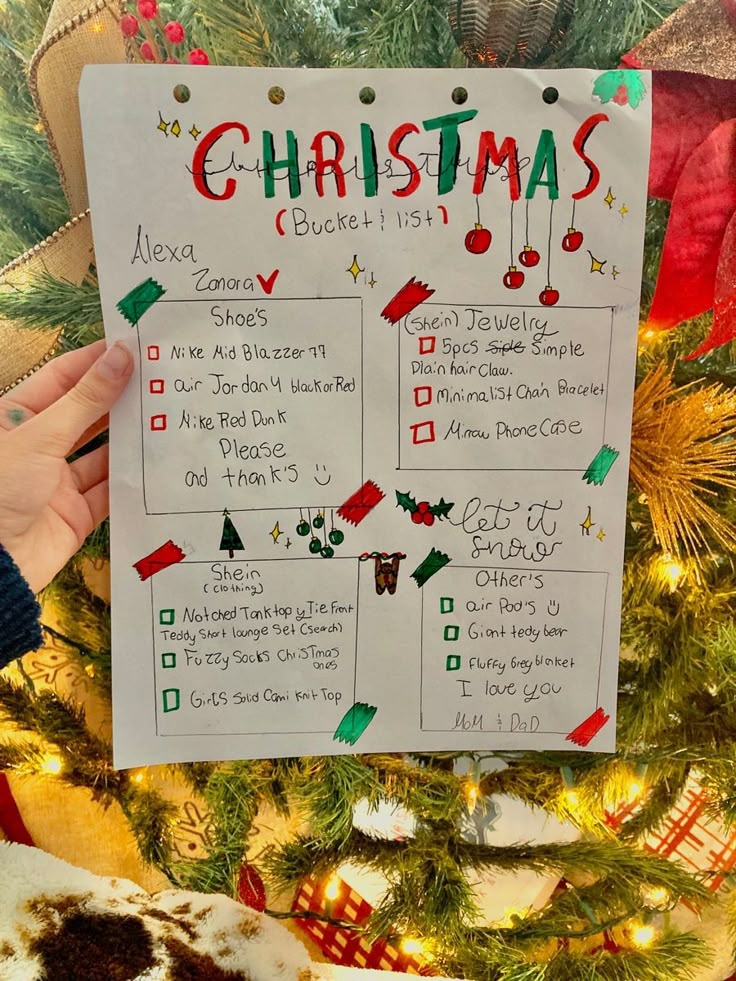 CHRISTMAS
christmas
(Bucket list)
Alexa
Zamora
Shoe's
Nike Mid Blazzer 77
air Jordan 4 black or Red
Nike Red Dunk
Please
and thank's
(Shein) Jewelry
5pcs Side Simple
Plain hair Claw.
Minimalist Chain Bracelet
Mirrow Phone Case
let it
snow
Shein
(clothing)
Notched Tank top y Tie Front
Teddy Short lounge Set (search)
Fuzzy Socks Christmas
ones
Girls Solid Cami Knit Top
Other's
air Pod's
Giant tedy bear
Fluffy Grey blanket
I love you
MoM & DaD